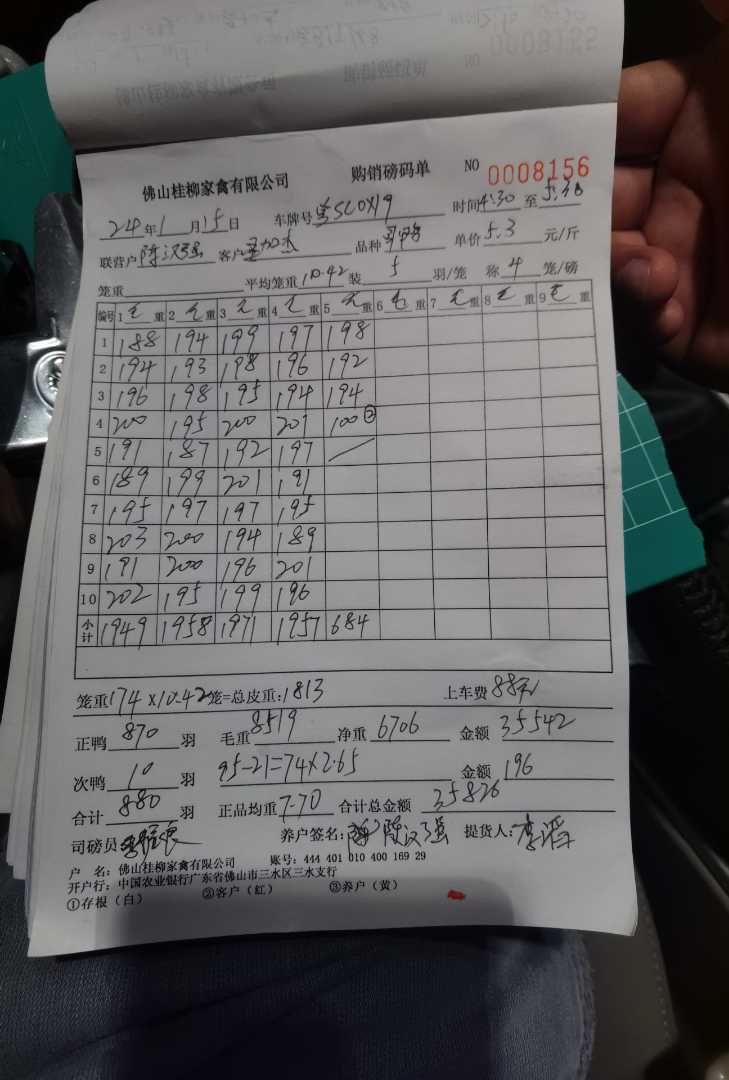 佛山桂柳家禽有限公司 购销磅码单 NO 0008156
24年1月15日 车牌号 SL0X19 时间4:30至5:30
联营户 陈汉强 客户 品种 单价5.3元/斤
笼重 平均笼重10.42 装5羽/笼 称4笼/磅
编号 1毛重 2毛重 3毛重 4毛重 5毛重 6毛重 7毛重 8毛重 9毛重
1 188 194 199 197 198
2 194 193 198 196 192
3 196 198 195 194 194
4 200 195 200 201 100②
5 191 187 192 197 /
6 189 199 201 191
7 195 197 197 195
8 203 200 194 189
9 191 200 196 201
10 202 195 199 196
小计 1949 1958 1971 1957 684
笼重174×10.42笼=总皮重:1813 上车费88元
正鸭870羽 毛重8519 净重6706 金额35542
次鸭10羽 95-21=74×2.65 金额196
合计880羽 正品均重7.70 合计总金额35826
司磅员 养户签名:陈汉强 提货人:
户 名:佛山桂柳家禽有限公司 账号:444 401 010 400 169 29
开户行:中国农业银行广东省佛山市三水区三水支行
①存根(白) ②客户(红) ③养户(黄)